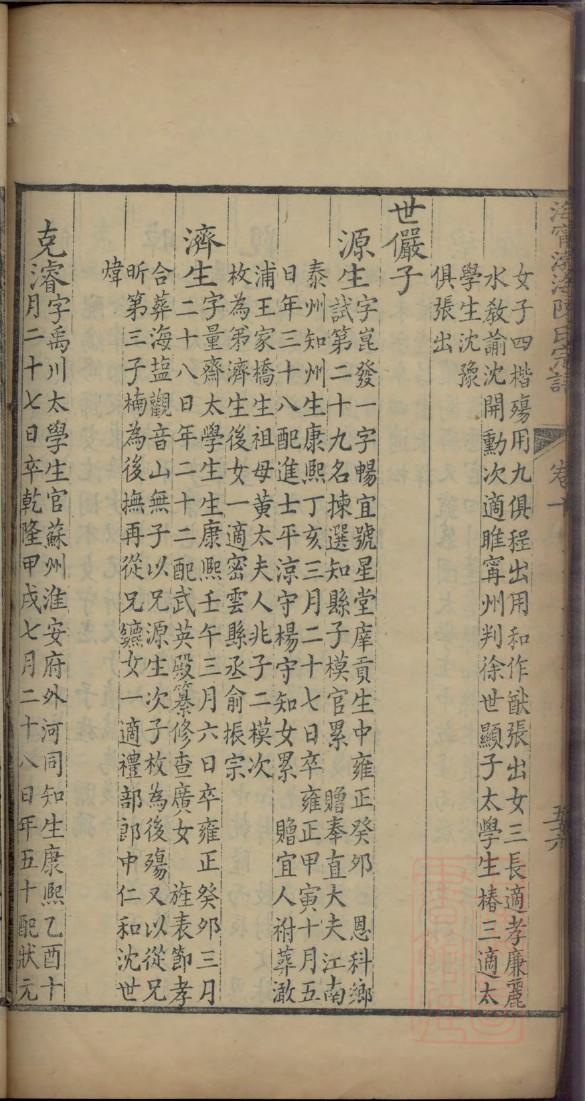 海寧渤海陳氏宗譜
卷十
女子四楷殤用九俱程出用和作猷張出女三長適孝廉麗
水教諭沈開勳次適睢寧州判徐世顯子太學生椿三適太
學生沈豫
俱張出
世儼子
源生字崑發一字暢宜號星堂廩貢生中雍正癸邜 恩科鄉
試第二十九名揀選知縣子模官累 贈奉直大夫江南
泰州知州生康熙丁亥三月二十七日卒雍正甲寅十月五
日年三十八配進士平涼守楊守知女累 贈宜人祔葬澉
浦王家橋生祖母黄太夫人兆子二模次
枚為弟濟生後女一適密雲縣丞俞振宗
濟生字量齋太學生生康熙壬午三月六日卒雍正癸邜三月
二十八日年二十二配武英殿纂修查廣女 旌表節孝
合葬海盐觀音山無子以兄源生次子枚為後殤又以從兄
昕第三子楠為後撫再從兄女一適禮部郎中仁和沈世
煒
克濬字禹川太學生官蘇州淮安府外河同知生康熙乙酉十
月二十七日卒乾隆甲戌七月二十八日年五十配狀元